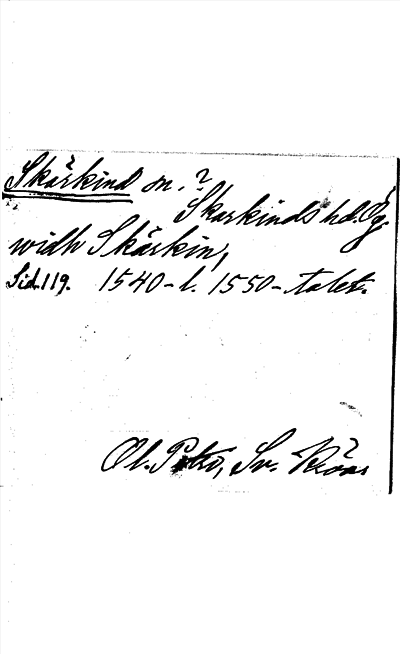 Skärkind sn.?
Skarkinds hd. Ög.
widh Skärkin,
Sid. 119. 1540- l. 1550-talet.
Ol. Petri, Sv. Krön.